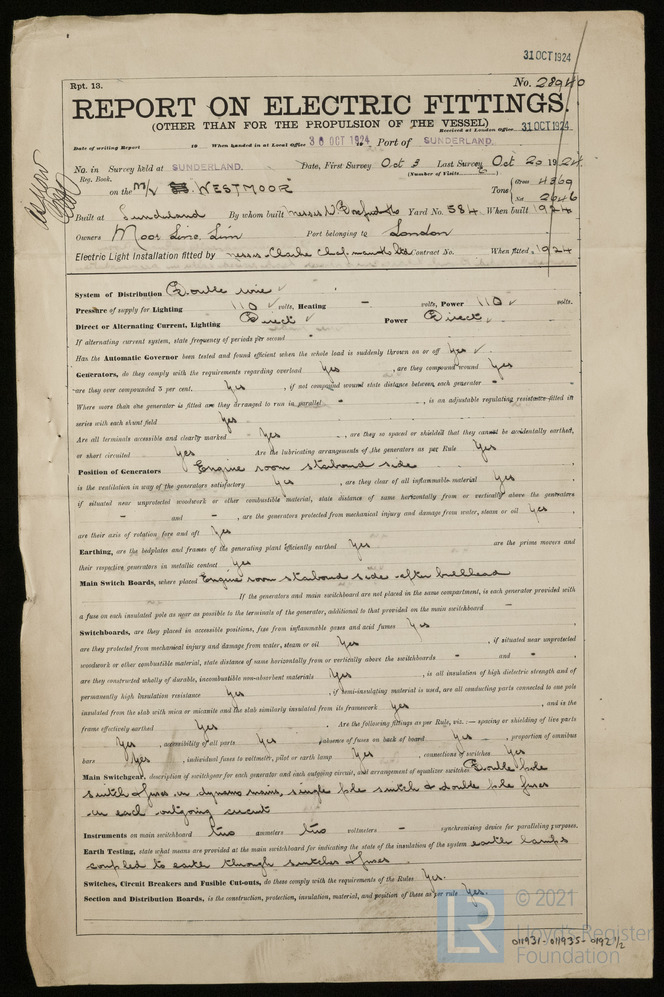 31 OCT 1924
Rpt. 13.
No. 28940
REPORT ON ELECTRIC FITTINGS.
(OTHER THAN FOR THE PROPULSION OF THE VESSEL)
Received at London Office 31 OCT 1924
Date of writing Report 19 When handed in at Local Office 30 OCT 1924 Port of SUNDERLAND.
No. in Survey held at SUNDERLAND. Date, First Survey Oct 3 Last Survey Oct 20 1924
Reg. Book. (Number of Visits)
on the M/V WESTMOOR Tons { Gross 4369
Net 2646
Built at Sunderland By whom built Yard No. 584 When built 1924
Owners Moor Line, Lim Port belonging to London
Electric Light Installation fitted by Messrs Clarke Chapman & Co Ltd Contract No. When fitted 1924
System of Distribution Double wire
Pressure of supply for Lighting 110 volts, Heating - volts, Power 110 volts.
Direct or Alternating Current, Lighting Direct Power Direct
If alternating current system, state frequency of periods per second -
Has the Automatic Governor been tested and found efficient when the whole load is suddenly thrown on or off Yes
Generators, do they comply with the requirements regarding overload Yes , are they compound wound Yes
are they over compounded 5 per cent. Yes , if not compound wound state distance between each generator -
Where more than one generator is fitted are they arranged to run in parallel - , is an adjustable regulating resistance fitted in
series with each shunt field Yes
Are all terminals accessible and clearly marked Yes , are they so spaced or shielded that they cannot be accidentally earthed,
or short circuited Yes Are the lubricating arrangements of the generators as per Rule Yes
Position of Generators Engine room starboard side
is the ventilation in way of the generators satisfactory Yes , are they clear of all inflammable material Yes ,
if situated near unprotected woodwork or other combustible material, state distance of same horizontally from or vertically above the generators
- and - , are the generators protected from mechanical injury and damage from water, steam or oil Yes ,
are their axis of rotation fore and aft Yes
Earthing, are the bedplates and frames of the generating plant efficiently earthed Yes are the prime movers and
their respective generators in metallic contact Yes
Main Switch Boards, where placed Engine room starboard side after bulkhead
If the generators and main switchboard are not placed in the same compartment, is each generator provided with
a fuse on each insulated pole as near as possible to the terminals of the generator, additional to that provided on the main switchboard -
Switchboards, are they placed in accessible positions, free from inflammable gases and acid fumes Yes ,
are they protected from mechanical injury and damage from water, steam or oil Yes , if situated near unprotected
woodwork or other combustible material, state distance of same horizontally from or vertically above the switchboards - and - ,
are they constructed wholly of durable, incombustible non-absorbent materials Yes , is all insulation of high dielectric strength and of
permanently high insulation resistance Yes , if semi-insulating material is used, are all conducting parts connected to one pole
insulated from the slab with mica or micanite and the slab similarly insulated from its framework Yes , and is the
frame effectively earthed Yes . Are the following fittings as per Rule, viz. :— spacing or shielding of live parts
Yes , accessibility of all parts Yes , absence of fuses on back of board Yes , proportion of omnibus
bars Yes , individual fuses to voltmeter, pilot or earth lamp Yes , connections of switches Yes
Main Switchgear, description of switchgear for each generator and each outgoing circuit, and arrangement of equalizer switches Double pole
switch & fuses on dynamo mains, single pole switch & double pole fuses
on each outgoing circuit
Instruments on main switchboard two ammeters two voltmeters - synchronising device for paralleling purposes.
Earth Testing, state what means are provided at the main switchboard for indicating the state of the insulation of the system earth lamps
coupled to earth through switches & fuses.
Switches, Circuit Breakers and Fusible Cut-outs, do these comply with the requirements of the Rules Yes.
Section and Distribution Boards, is the construction, protection, insulation, material, and position of these as per rule Yes.
© 2021
Lloyd's Register
Foundation
LR
011931-011935-0192 1/2